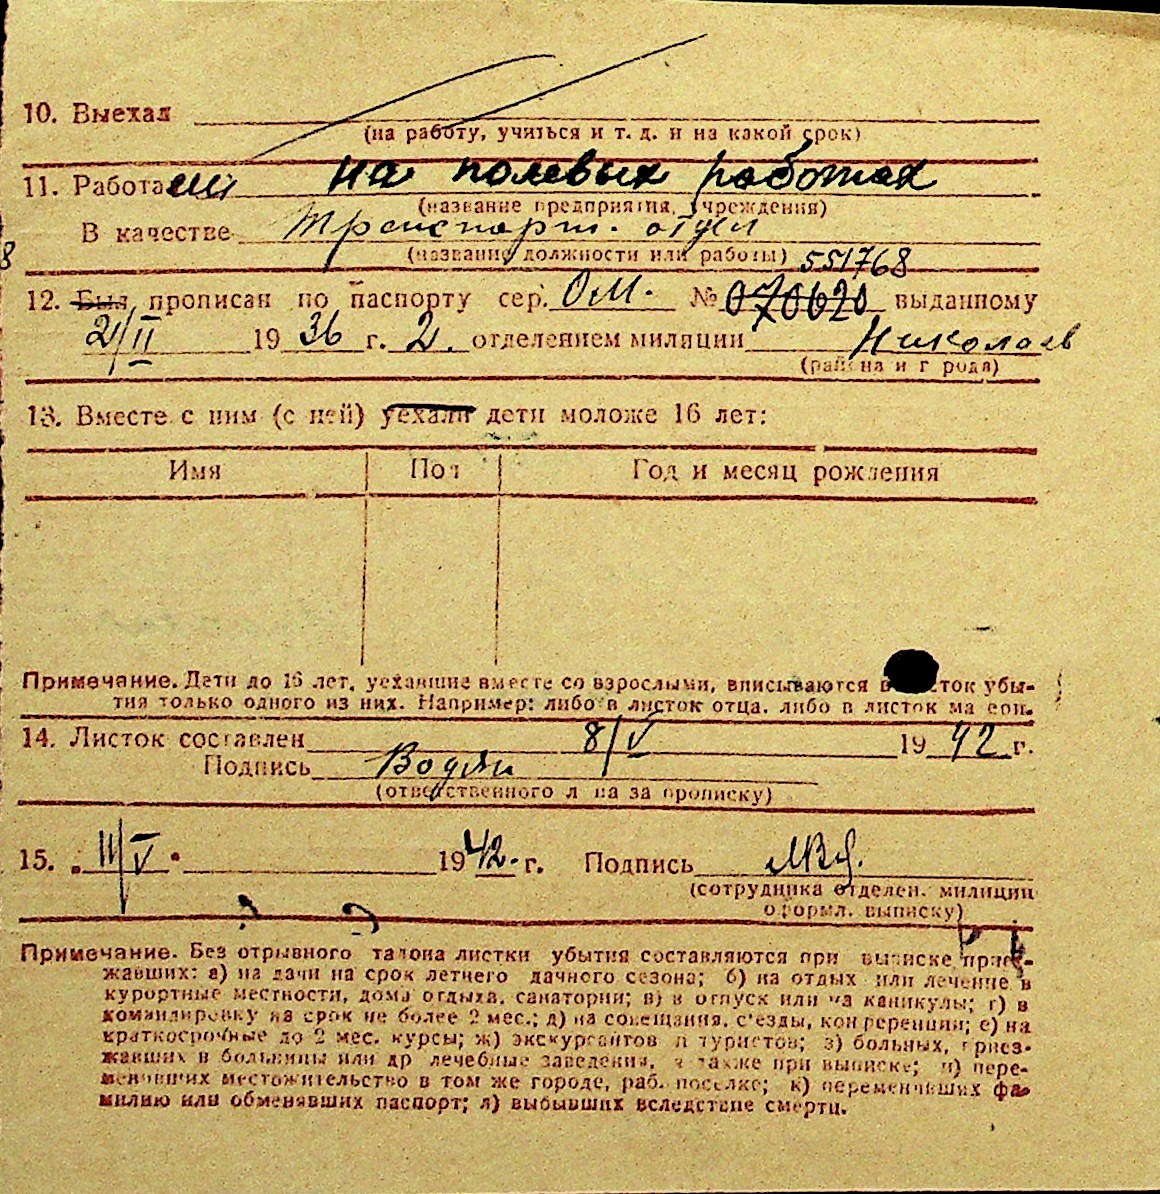 10. Выехал
(на работу, учиться и т. д. и на какой срок)
11. Работа на полевых работах
(название предприятия, учреждения)
В качестве Транспорт. отдел
(название должности или работы) 551768
12. Был прописан по паспорту сер. ОМ. № 070620 выданному
21/II 1936 г. 2. отделением милиции Николаев
(района и города)
13. Вместе с ним (с ней) уехали дети моложе 16 лет:
Имя Пол Год и месяц рождения
Примечание. Дети до 16 лет, уехавшие вместе со взрослыми, вписываются в листок убы-
тия только одного из них. Например: либо в листок отца, либо в листок матери.
14. Листок составлен 8/V 1942 г.
Подпись
(ответственного лица за прописку)
15. „11/V" 1942 г. Подпись
(сотрудника отделен. милиции
оформл. выписку)
Примечание. Без отрывного талона листки убытия составляются при выписке приез-
жавших: а) на дачи на срок летнего дачного сезона; б) на отдых или лечение в
курортные местности, дома отдыха, санатории; в) в отпуск или на каникулы; г) в
командировку на срок не более 2 мес.; д) на совещания, с'езды, конференции; е) на
краткосрочные до 2 мес. курсы; ж) экскурсантов и туристов; з) больных, приез-
жавших в больницы или др лечебные заведения, а также при выписке; и) пере-
менивших местожительство в том же городе, раб. поселке; к) переменивших фа-
милию или обменявших паспорт; л) выбывших вследствие смерти.